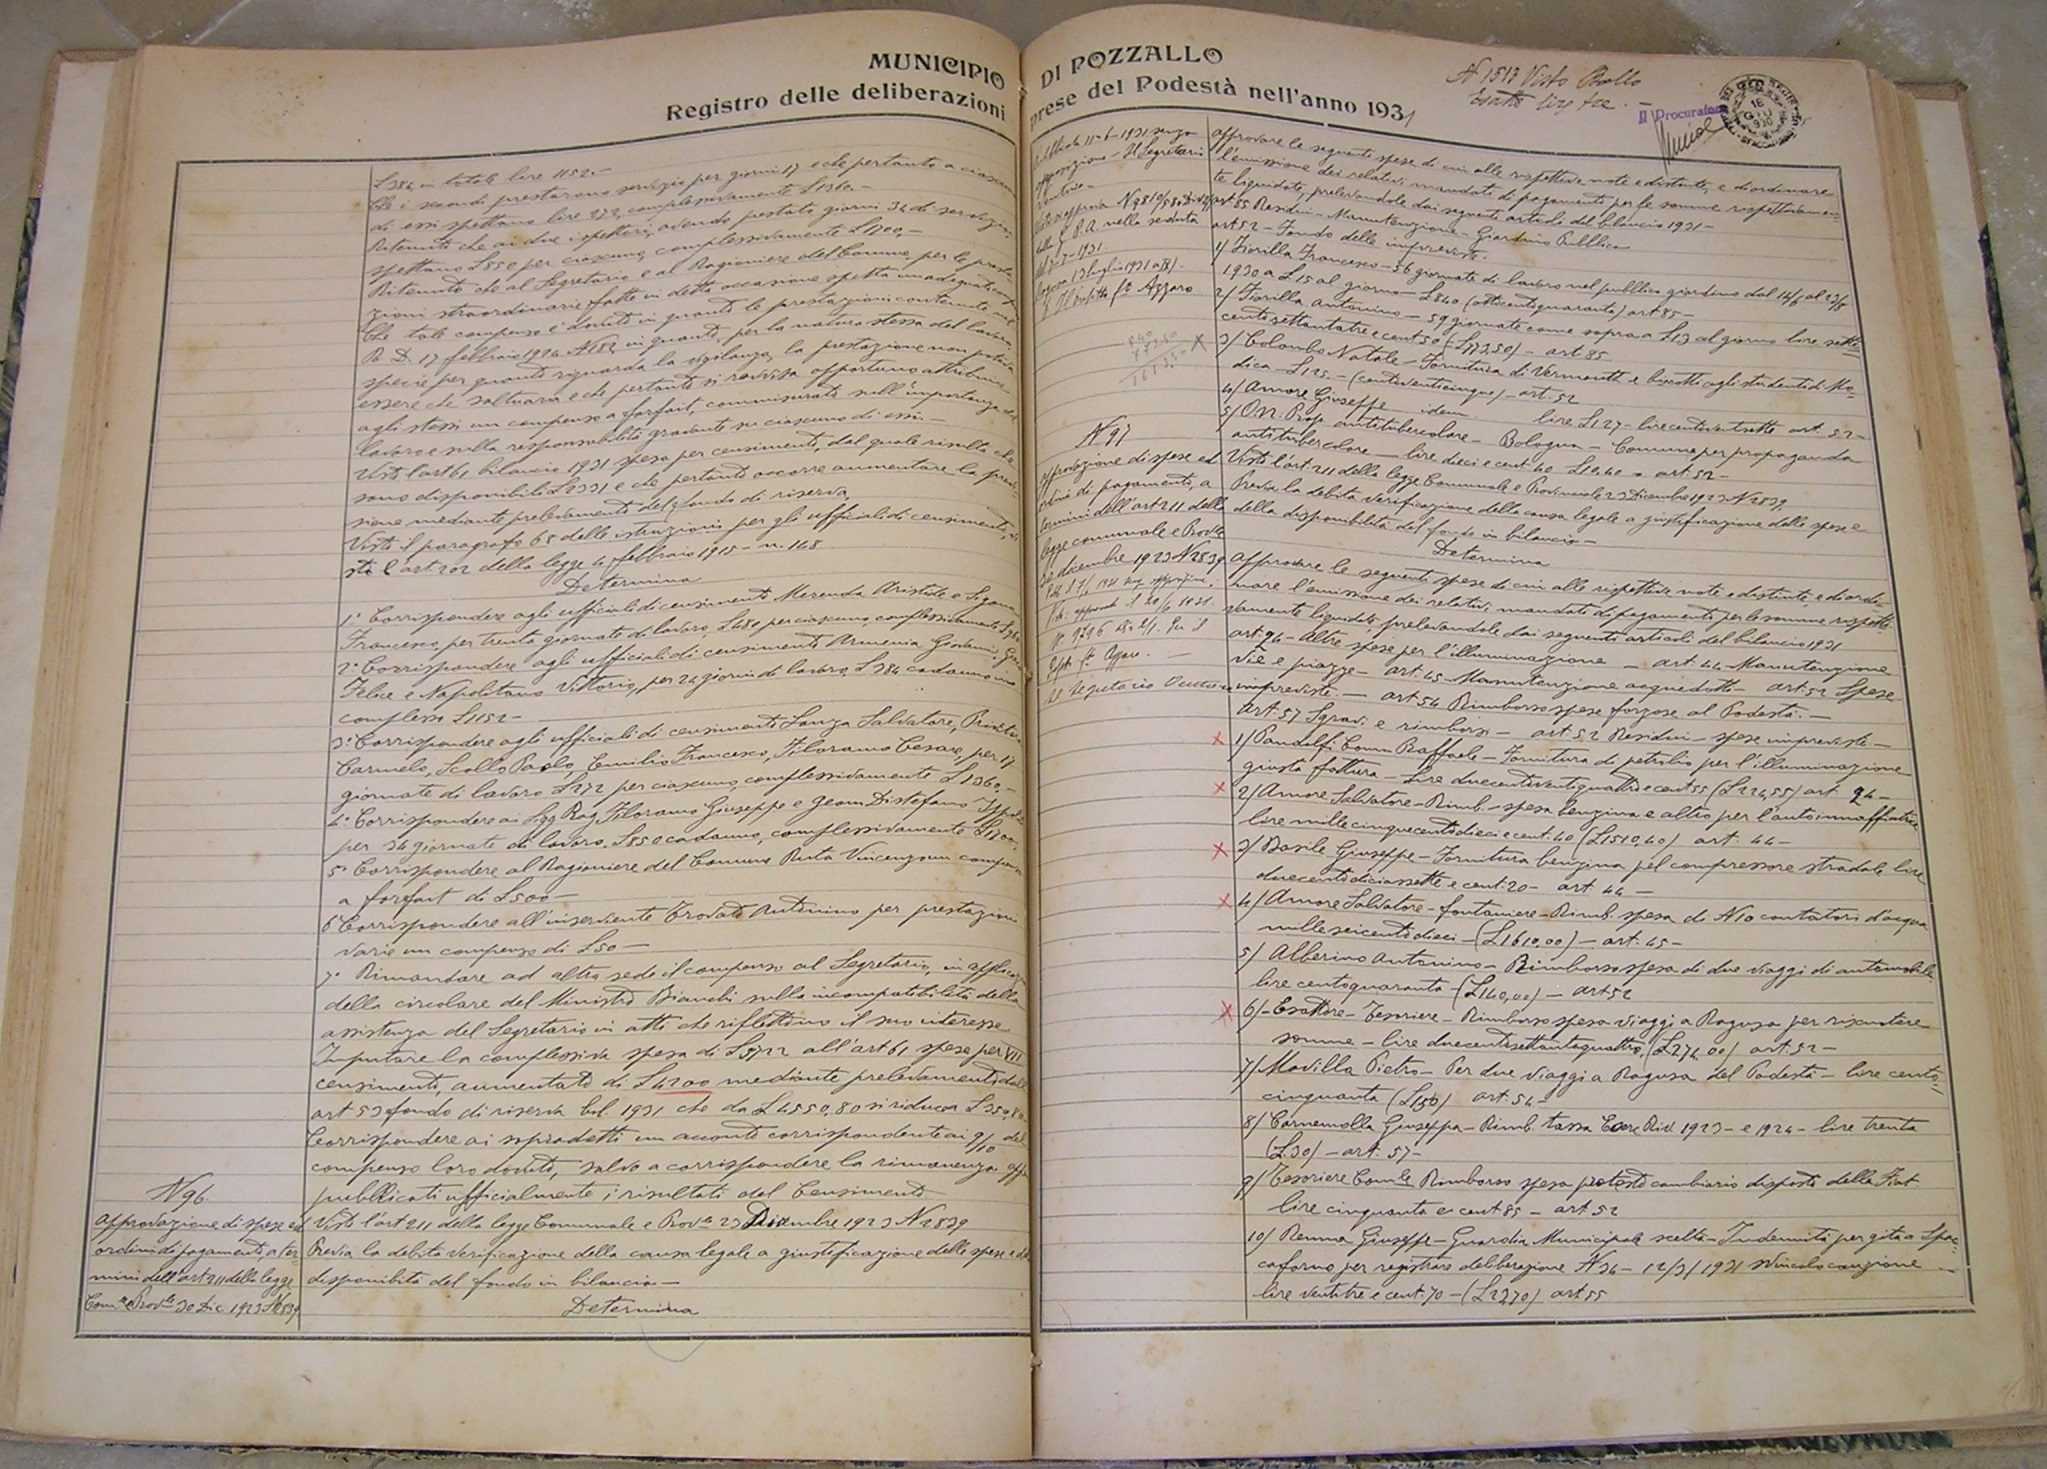 MUNICIPIO DI POZZALLO
Registro delle deliberazioni prese del Podestà nell'anno 1931
N 1513 Visto Bollo
Esatte lire tre. -
Il Procuratore
L 384 in totale lire 1152.-
Che i secondi prestarono servizio per giorni 17 e che pertanto a ciascuno
di essi spettano lire 272, complessivamente L 1360.-
Ritenuto che ai due ispettori, avendo prestato giorni 34 di servizio,
spettano L 850 per ciascuno, complessivamente L 1700.-
Ritenuto che al Segretario e al Ragioniere del Comune, per le presta-
zioni straordinarie fatte in detta occasione spetta un adeguato
Che tale compenso è dovuto in quanto le prestazioni contenute nel
R. D. 17 febbraio 1924 N 182, in quanto, per la natura stessa del lavoro,
specie per quanto riguarda la vigilanza, la prestazione non poteva
essere che saltuaria e che pertanto si ravvisa opportuno attribuire
agli stessi un compenso a forfait, commisurato sull'importanza del
lavoro e sulla responsabilità gravante su ciascuno di essi -
Visto l'art 61 bilancio 1931 spesa per censimento, dal quale risulta che
sono disponibili L 1331 e che pertanto occorre aumentare la previ-
sione mediante prelevamento dal fondo di riserva,
Visto il paragrafo 65 delle istruzioni per gli ufficiali di censimento, vi-
sto l'art 202 della legge 4 febbraio 1915 - n. 148
Determina
1° Corrispondere agli ufficiali di censimento Merenda Aristide e
Francesco, per trenta giornate di lavoro, L 480 per ciascuno, complessivamente L 960
2° Corrispondere agli ufficiali di censimento Armenia Giovanni,
Felice e Napolitano Vittorio, per 24 giorni di lavoro, L 384 cadauno in
complesso L 1152 -
3° Corrispondere agli ufficiali di censimento Lanza Salvatore,
Carmelo, Scollo Paolo, Emilio Francesco, Filoramo Cesare, per 17
giornate di lavoro L 272 per ciascuno, complessivamente L 1360,-
4° Corrispondere ai Sigg Rag Filoramo Giuseppe e geom Distefano
per 34 giornate di lavoro, L 850 cadauno, complessivamente L 1700,
5° Corrispondere al Ragioniere del Comune Ruta Vincenzo un compenso
a forfait di L 500
6° Corrispondere all'inserviente Trovato Antonino per prestazioni
varie un compenso di L 50 -
7° Rimandare ad altra sede il compenso al Segretario, in applicazione
della circolare del Ministro Bianchi sulla incompatibilità della
assistenza del Segretario in atti che riflettino il suo interesse
Imputare la complessiva spesa di L 5722 all'art 61 spese per VII
censimento, aumentato di L 4200 mediante prelevamento dall'
art 53 fondo di riserva bil. 1931 che da L 4550,80 si riduce a L 350,80
Corrispondere ai sopradetti un acconto corrispondente ai 9/10 del
compenso loro dovuto, salvo a corrispondere la rimanenza appena
pubblicati ufficialmente i risultati del Censimento
N 96.
Approvazione di spese ed
ordini di pagamento, a ter-
mini dell'art 211 della legge
Com.le e Prov.le 30 Dic. 1923 N 2839
Visto l'art 211 della legge Comunale e Prov.le 23 Dicembre 1923 N 2839
Previa la debita verificazione della causa legale a giustificazione delle spese e della
disponibilità del fondo in bilancio -
Determina
Pubblicata 15-6-1931 senza
opposizione - Il Segretario
dalla G. P. A. nella seduta
Ragusa 13 luglio 1931 a. IX.
Il Prefetto f.to Azzaro
approvare le seguenti spese di cui alle rispettive note e distinte, e di ordinare
l'emissione dei relativi mandati di pagamento per le somme rispettivamen-
te liquidate, prelevandole dai seguenti articoli del bilancio 1931 -
art 85 Residui - Manutenzione - Giardino Pubblico
art 52 - Fondo delle impreviste.
1/ Fiorilla Francesco - 56 giornate di lavoro nel pubblico giardino dal 14/6 al 23/8
1930 a L 15 al giorno - L 840 (ottocentoquaranta) art 85 -
2/ Fiorilla Antonino - 59 giornate come sopra a L 13 al giorno lire sette-
centosettantatre e cent 50 (L 773,50) - art 85
3/ Colombo Natale - Fornitura di Vermouth e biscotti agli studenti di Mo-
dica - L 125 - (centoventicinque) - art. 52
4/ Amore Giuseppe idem lire L 127 - lire centoventisette art 52 -
5/ On. Prop. antitubercolare - Bologna - Comune per propaganda
antitubercolare - lire dieci e cent. 40 L 10,40 - art. 52 -
840
773.50
1613.50
X
N 97
Approvazione di spese ed
ordini di pagamento, a
termini dell'art 211 della
legge comunale e Prov.le
30 dicembre 1923 N 2839
Visto l'art. 211 della legge Comunale e Provinciale 23 Dicembre 1923 N 2839,
Previa la debita verificazione della causa legale a giustificazione delle spese e
della disponibilità del fondo in bilancio -
Determina
Approvare le seguenti spese di cui alle rispettive note e distinte, e di ordi-
nare l'emissione dei relativi mandati di pagamento per le somme rispetti-
vamente liquidate, prelevandole dai seguenti articoli del bilancio 1931
art 94 - Altre spese per l'illuminazione - art. 44 - Manutenzione
vie e piazze - art. 45 - Manutenzione acquedotto - art 52 Spese
impreviste. - art 54 Rimborso spese forzose al Podestà. -
art. 57 Sgravi e rimborsi - art 52 Residui - spese impreviste -
1/ Pandolfi Comm Raffaele - Fornitura di petrolio per l'illuminazione
giusta fattura - Lire duecentoventiquattro e cent 55 (L 224,55) art 94 -
2/ Amore Salvatore - Rimb. - spesa benzina e altro per l'autoinnaffiatrice
lire millecinquecentodieci e cent. 40 (L 1510,40) art. 44 -
3/ Basile Giuseppe - Fornitura benzina pel compressore stradale lire
duecentodiciassette e cent. 20 - art 44 -
4/ Amore Salvatore - fontaniere - Rimb. spesa di N 10 contatori d'acqua
milleseicentodieci - (L 1610,00) - art. 45 -
5/ Alberino Antonino - Rimborso spesa di due viaggi di automobile
lire centoquaranta (L 140,00) - art 52
6/ - Esattore - Tesoriere - Rimborso spesa viaggi a Ragusa per riscuotere
somme - lire duecentosettantaquattro (L 274,00) art. 52 -
7/ Movilla Pietro - Per due viaggi a Ragusa del Podestà - lire cento-
cinquanta (L 150) art. 54 -
8/ Carnemolla Giuseppa - Rimb. tassa Eser Riv. 1923 - e 1924 - lire trenta
(L. 30) - art. 57 -
9/ Tesoriere Com.le Rimborso spesa protesto cambiario disposto dalla Fiat
lire cinquanta e cent 85 - art 52
10/ Renna Giuseppe - Guardia Municipale scelta - Indennità per gita a Spac-
caforno per registrare deliberazione N 34 - 12/3/1931 svincolo cauzione -
lire ventitre e cent. 70 - (L 23,70) art 55